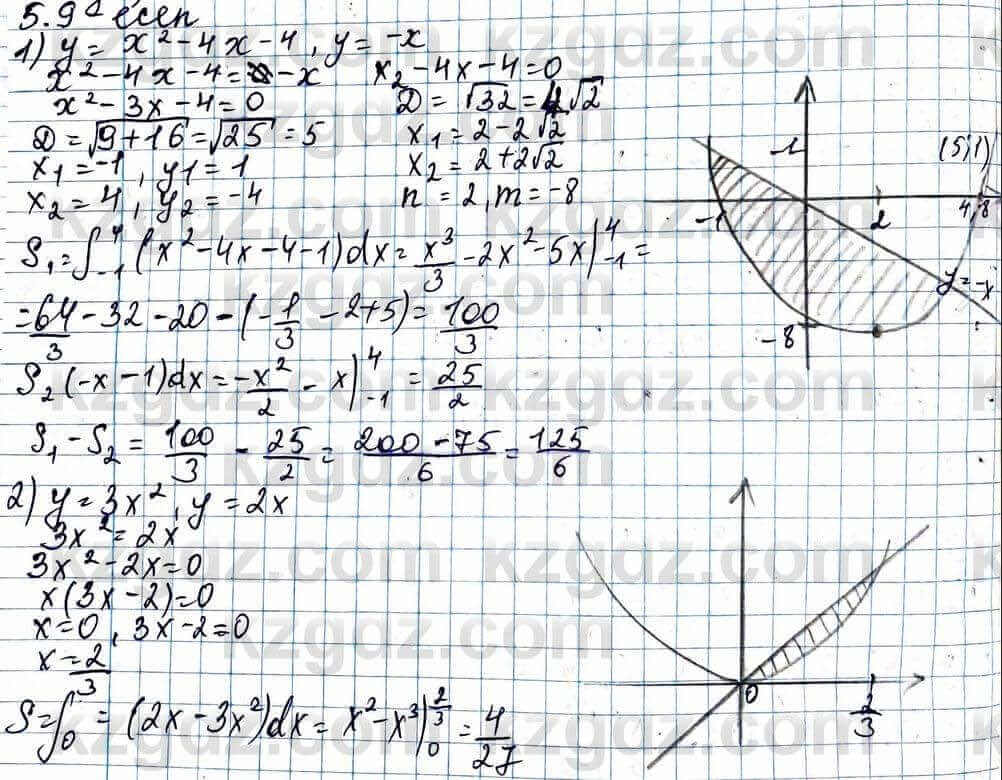 5.9 есеп
1) y = x² - 4x - 4, y = -x
x² - 4x - 4 = -x    x₂ - 4x - 4 = 0
x² - 3x - 4 = 0    D = √32 = 4√2
D = √9+16 = √25 = 5    x₁ = 2 - 2√2
x₁ = -1, y₁ = 1    x₂ = 2 + 2√2
x₂ = 4, y₂ = -4    n = 2, m = -8
S₁ = ∫₋₁⁴ (x² - 4x - 4 - 1)dx = x³/3 - 2x² - 5x)|₋₁⁴ =
= 64/3 - 32 - 20 - (-1/3 - 2 + 5) = 100/3
S₂ (-x - 1)dx = -x²/2 - x)|₋₁⁴ = 25/2
S₁ - S₂ = 100/3 - 25/2 = 200 - 75/6 = 125/6
-1
(5,1)
-1
2
4,8
y = -x
-8
2) y = 3x², y = 2x
3x² = 2x
3x² - 2x = 0
x(3x - 2) = 0
x = 0, 3x - 2 = 0
x = 2/3
S = ∫₀ = (2x - 3x²)dx = x² - x³)|₀^2/3 = 4/27
0
2/3
kzgdz.com